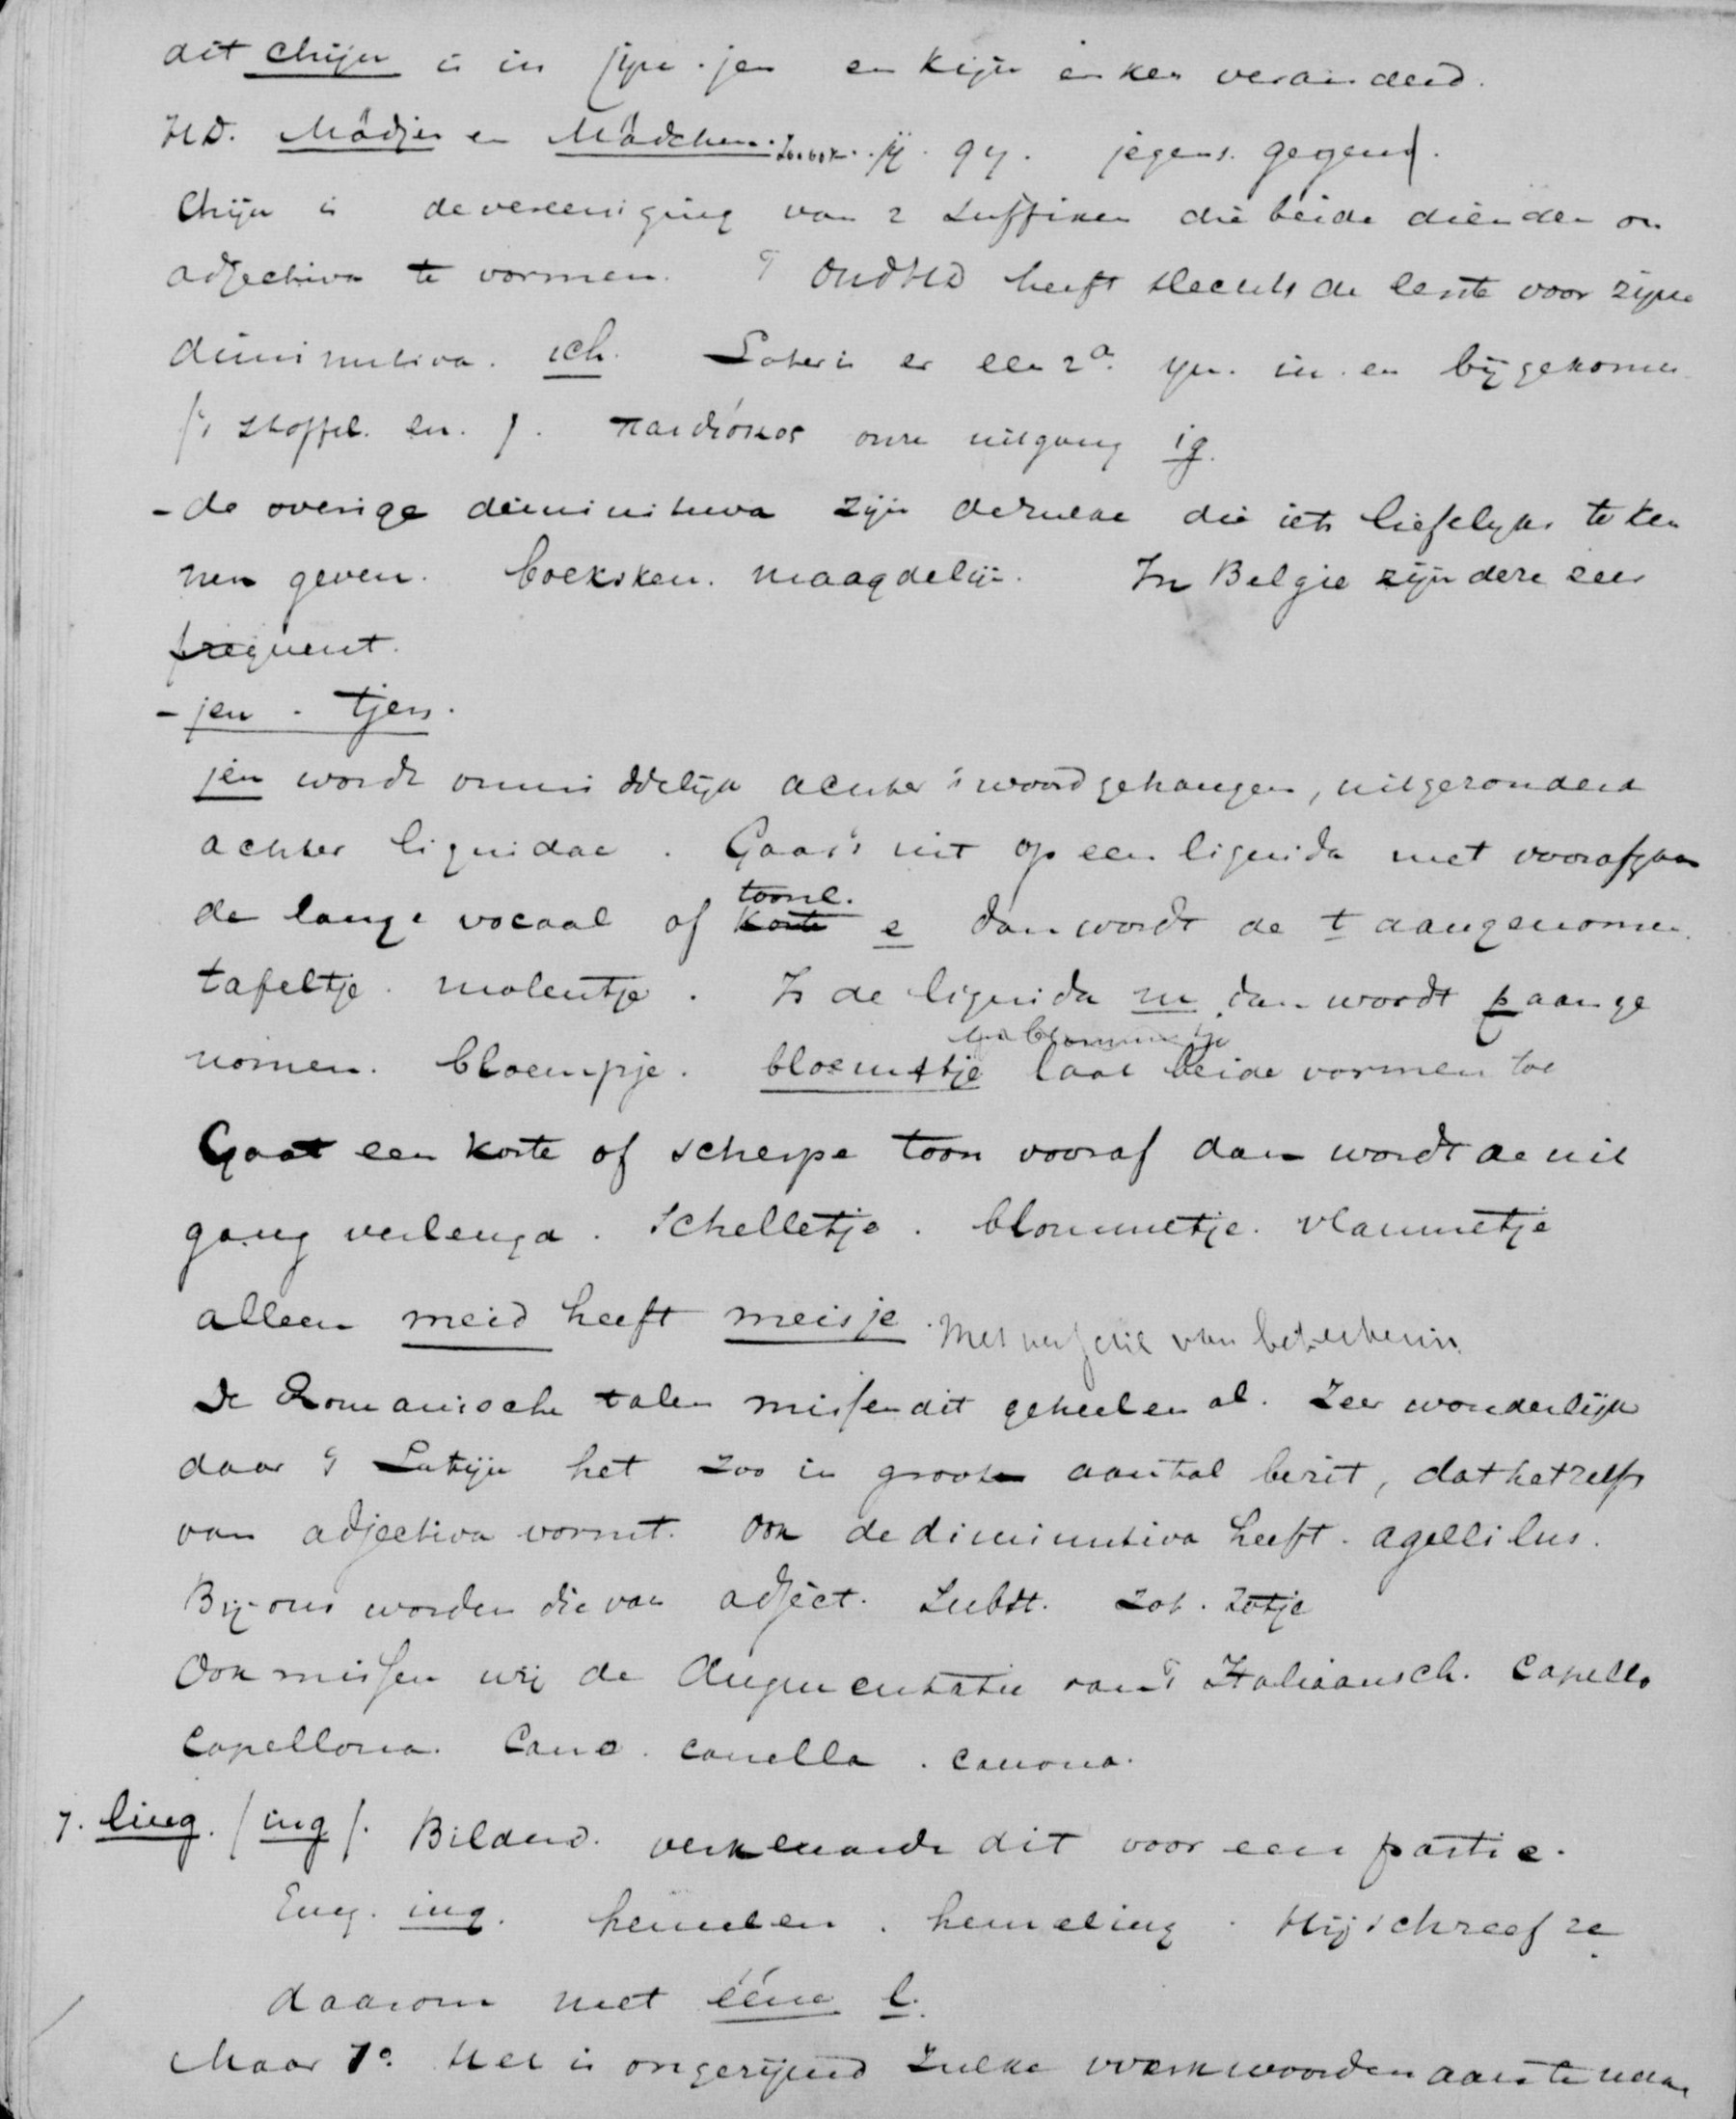 dit chijn is in jijn . jen en kijn en ken veranderd.
HD. Mädjen en Mädchen. jegens. gegens.
Chijn is de vereeniging van 2 suffixen die beide dienden om
adjectiva te vormen. 't OudHD heeft slechts de eerste voor zijne
diminutiva. ich. Later is er een 2e ijn. in. en bijgekomen
stoffel. en. παιδιόνος onze uitgang ig.
- de overige diminitiva zijn dezulke die iets liefelijks te ken
nen geven. boeksken. maagdelijn. In Belgie zijn deze zeer
frequent.
- jen . tjen.
jen wordt onmiddelijk achter 't woord gehangen, uitgezonderd
achter liquidae . Gaat 't uit op een liquida met voorafgaan
de lange vocaal of korte toonl. e dan wordt de t aangenomen.
tafeltje. molentje . Is de liquida m dan wordt p aange
nomen. bloempje. bloemtje laat beide vormen toe
Gaat een korte of scherpe toon vooraf dan wordt de uit
gang verlengd . Schelletje . blommetje. vlammetje
alleen meid heeft meisje. Met verschil van beteekenis.
De Romanische talen missen dit geheel en al. Zeer wonderlijk
daar 't Latijn het zoo in grooten aantal bezit, dat het zelfs
van adjectiva vormt. Ook dediminutiva heeft. agellilus.
Bij ons worden die van adject. Subst. zot. zotje
Ook missen wij de Augmentatie van 't Italiaansch. Capello
Capellona. Cane . canella . canona.
7. ling. / ing /. Bilderd. verklaarde dit voor een partic.
Eng. ing. hemelen . hemeling . Hij schreef ze
daarom met ééne l.
Maar 1o. Het is ongerijmd zulke werkwoorden aan te nemen